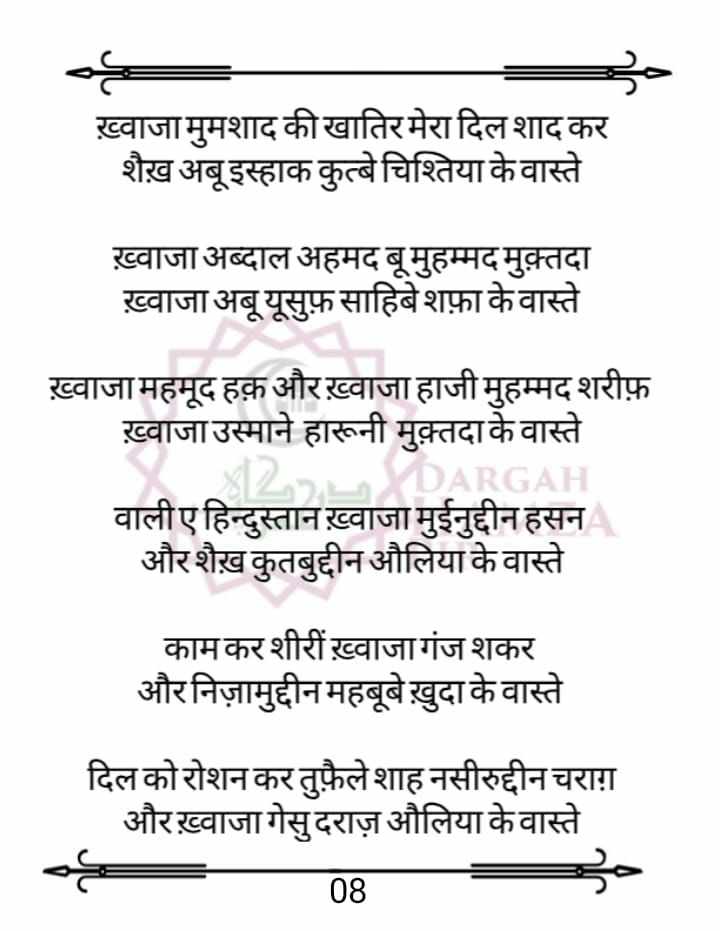 ख़्वाजा मुमशाद की खातिर मेरा दिल शाद कर
शैख़ अबू इस्हाक कुत्बे चिश्तिया के वास्ते
ख़्वाजा अब्दाल अहमद बू मुहम्मद मुक़्तदा
ख़्वाजा अबू यूसुफ़ साहिबे शफ़ा के वास्ते
ख़्वाजा महमूद हक़ और ख़्वाजा हाजी मुहम्मद शरीफ़
ख़्वाजा उस्माने हारूनी मुक़्तदा के वास्ते
DARGAH
वाली ए हिन्दुस्तान ख़्वाजा मुईनुद्दीन हसन
HAMZA
और शैख़ कुतबुद्दीन औलिया के वास्ते
काम कर शीरीं ख़्वाजा गंज शकर
और निज़ामुद्दीन महबूबे ख़ुदा के वास्ते
दिल को रोशन कर तुफ़ैले शाह नसीरुद्दीन चराग़
और ख़्वाजा गेसु दराज़ औलिया के वास्ते
08